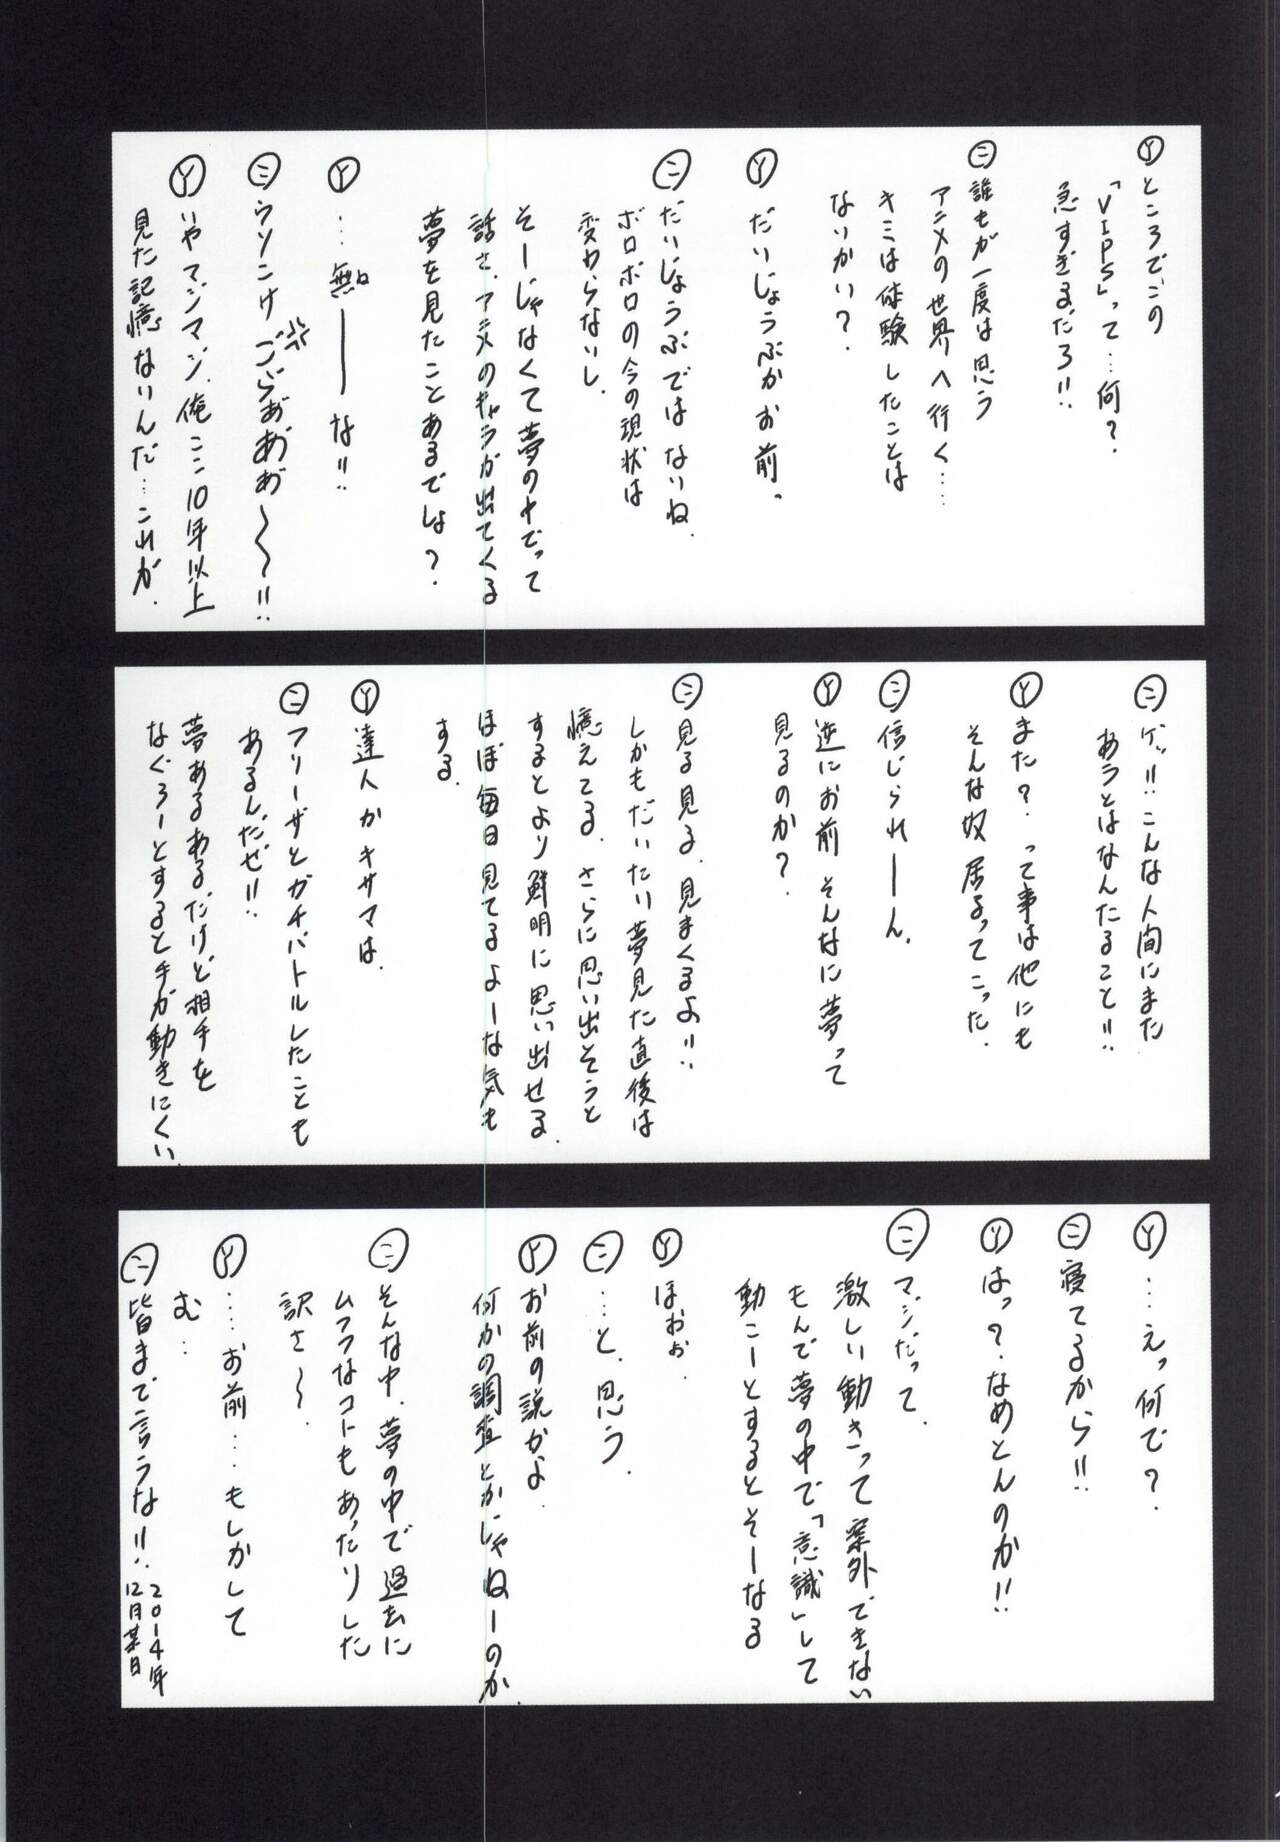 Ⓨところでこの
「VIPS」って…何？
急すぎるだろ!!
㊁誰もが一度は思う
アニメの世界へ行く……
キミは体験したことは
ないかい？
Ⓨだいじょうぶかお前。
㊁だいじょうぶではないね。
ボロボロの今の現状は
変わらないし。
そーじゃなくて夢の中でって
話さ、アニメのキャラが出てくる
夢を見たことあるでしょ？
Ⓨ…無ーーーな!!
㊁ウソこけごらぁあ゛あ゛〜〜!!
Ⓨいやマジマジ、俺ここ10年以上
見た記憶ないんだ…これが。
㊁ゲッ!!こんな人間にまた
あうとはなんたること!!
Ⓨまた？って事は他にも
そんな奴居るってこった。
㊁信じられーーん。
Ⓨ逆にお前そんなに夢って
見るのか？
㊁見る見る、見まくるよ!!
しかもだいたい夢見た直後は
憶えてる。さらに思い出そうと
するとより鮮明に思い出せる。
ほぼ毎日見てるよーな気も
する。
Ⓨ達人かキサマは。
㊁フリーザとガチバトルしたことも
あるんだぜ!!
夢あるあるだけど相手を
なぐろーとすると手が動きにくい。
Ⓨ……えっ何で？
㊁寝てるから!!
Ⓨはっ？なめとんのか!!
㊁マジだって。
激しい動きって案外できない
もんで夢の中で「意識」して
動こーとするとそーなる
Ⓨほぉぉ。
㊁…と、思う。
Ⓨお前の説かよ。
何かの調査とかじゃねーのか。
㊁そんな中、夢の中で過去に
ムフフなコトもあったりした
訳さ〜。
Ⓨ……お前…もしかして
む…
㊁皆まで言うな!!
2014年
12月某日